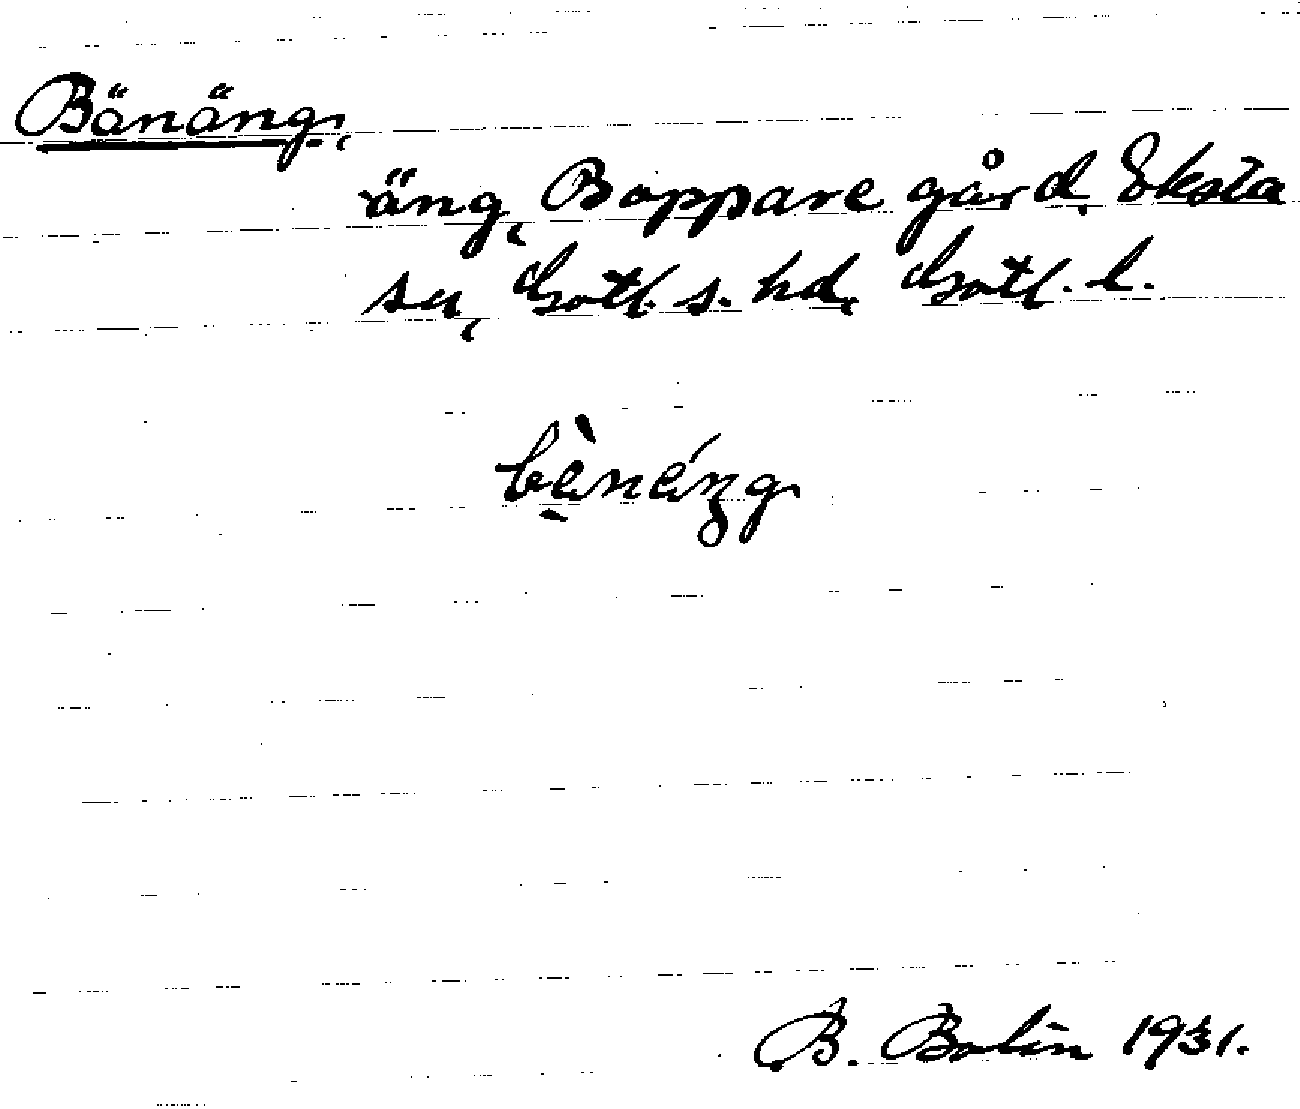 Bänäng,
äng, Boppare gård, Eksta
sn, Gotl. s. hd, Gotl. l.
B. Bolin 1931.